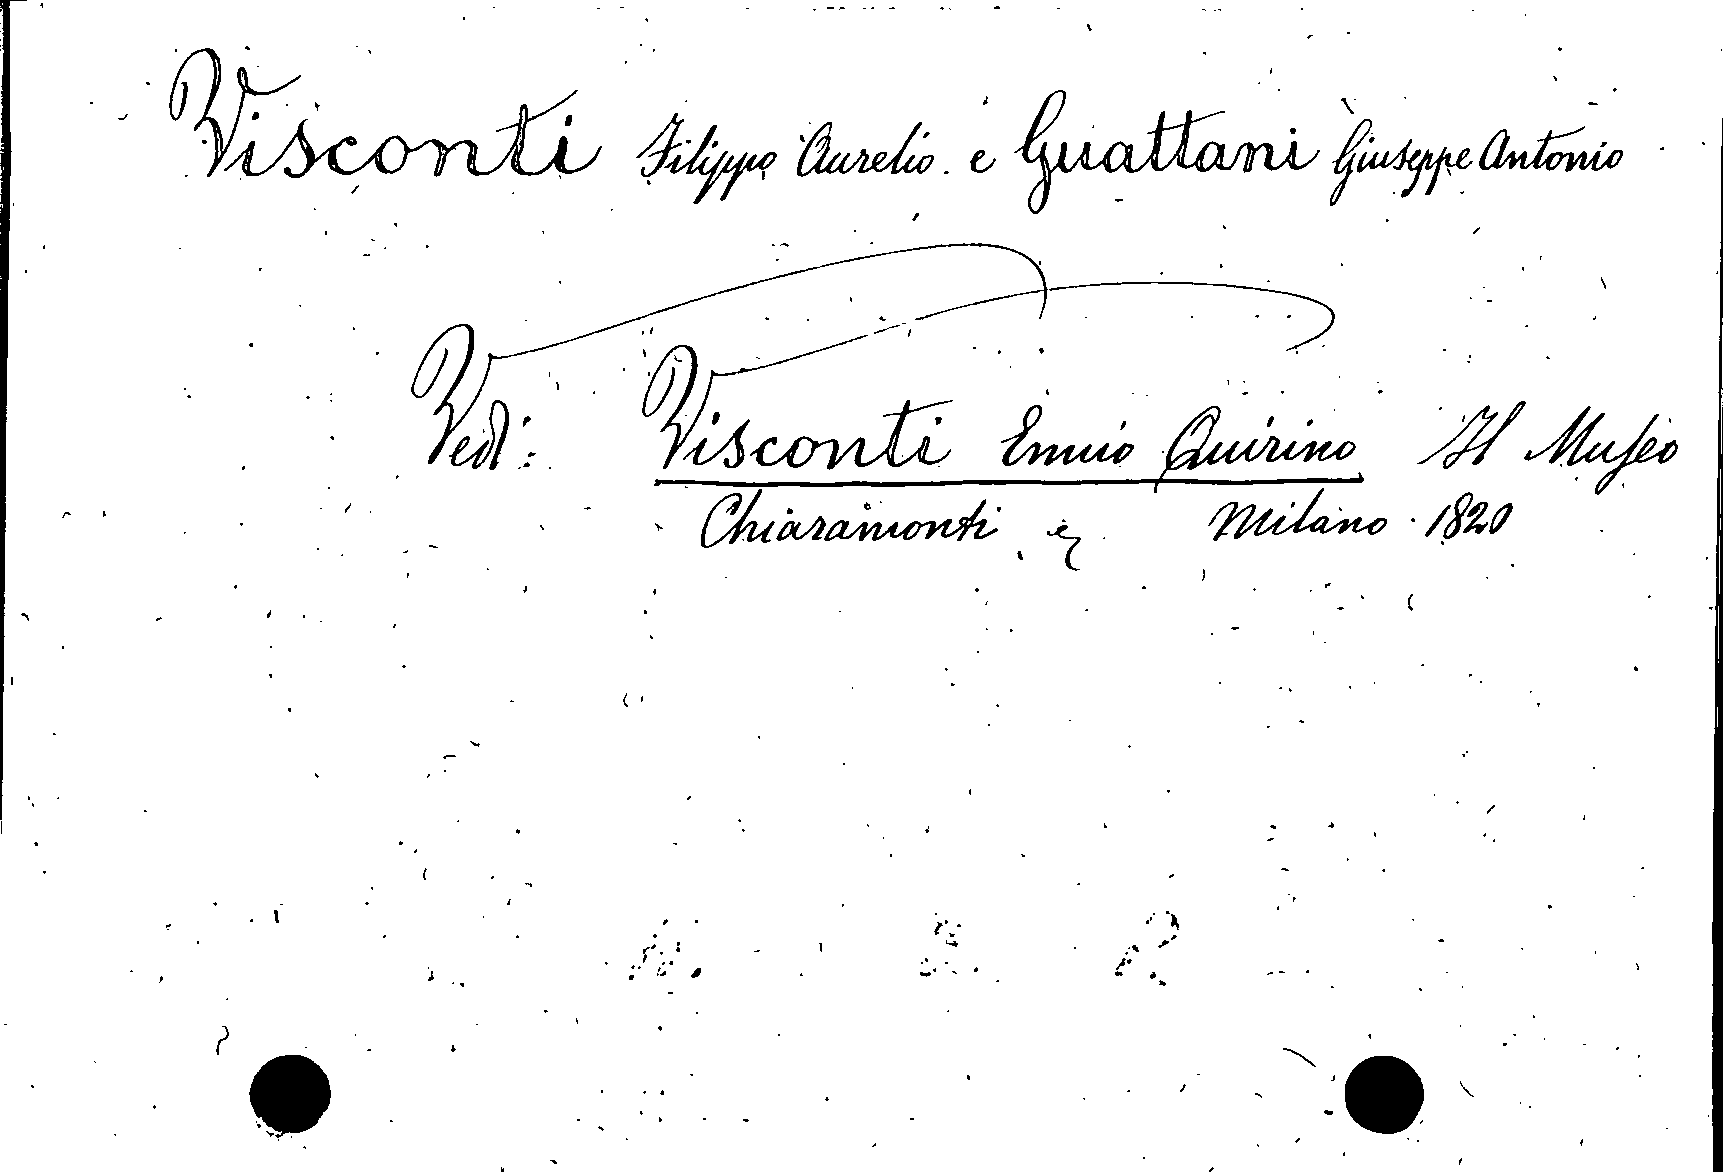 Visconti Filippo Aurelio. e Guattani Giuseppe Antonio
Vedi: Visconti Ennio Quirino Il Museo
Chiaramonti Milano. 1820